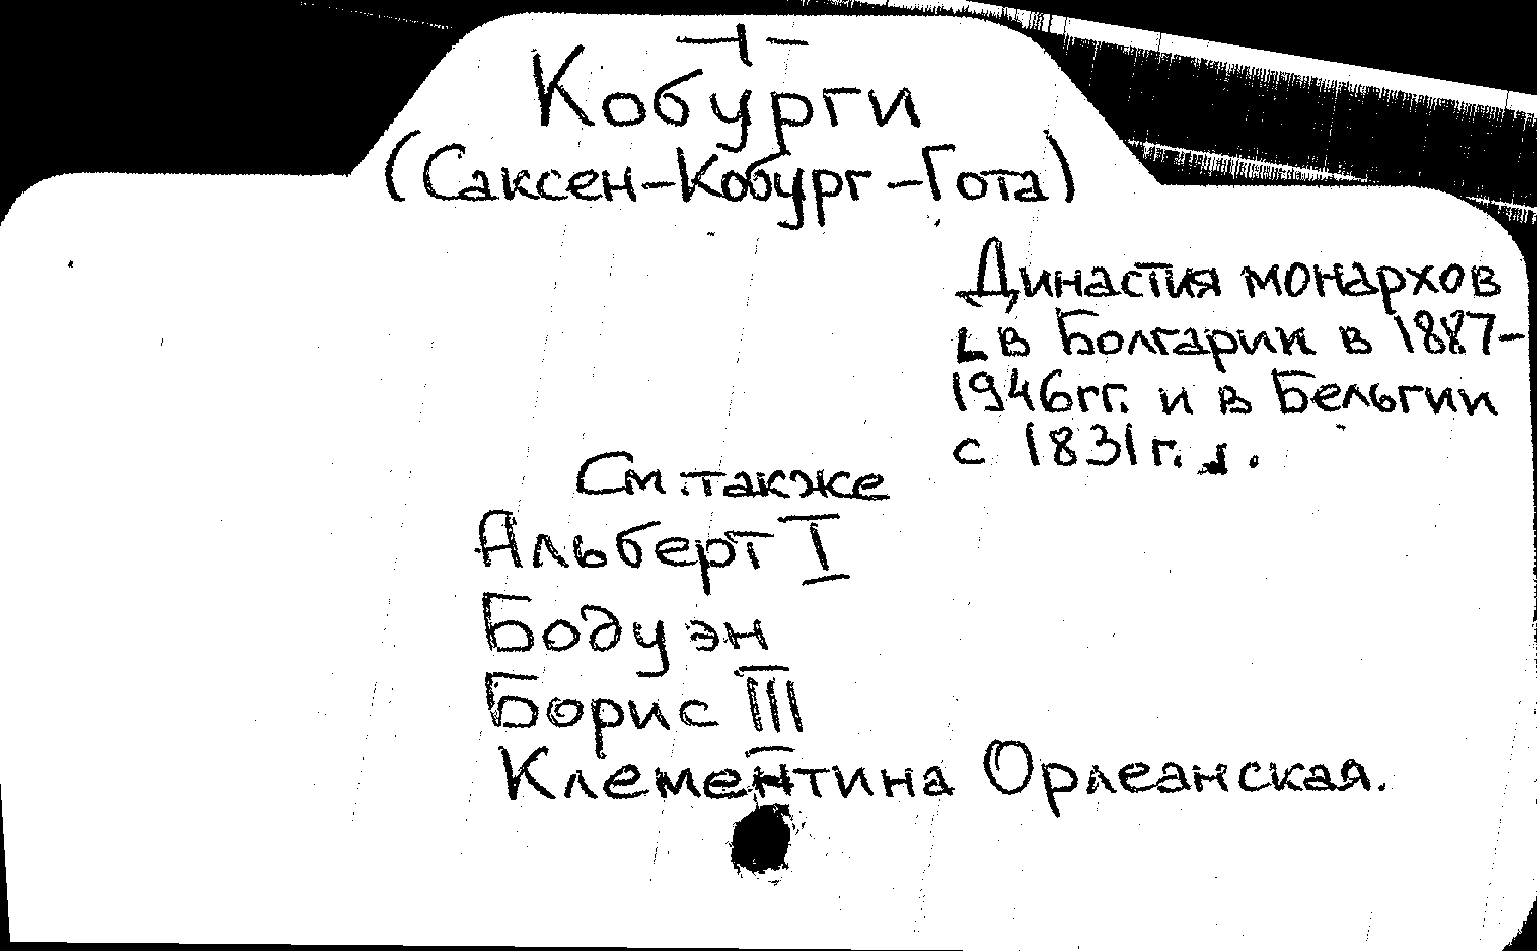 Кобурги
(Саксен-Кобург-Гота)
Династия монархов
в Болгарии в 1887-
1946гг. и в Бельгии
с 1831г.
См. также
Альберт I
Бодуэн
Борис III
Клементина Орлеанская.